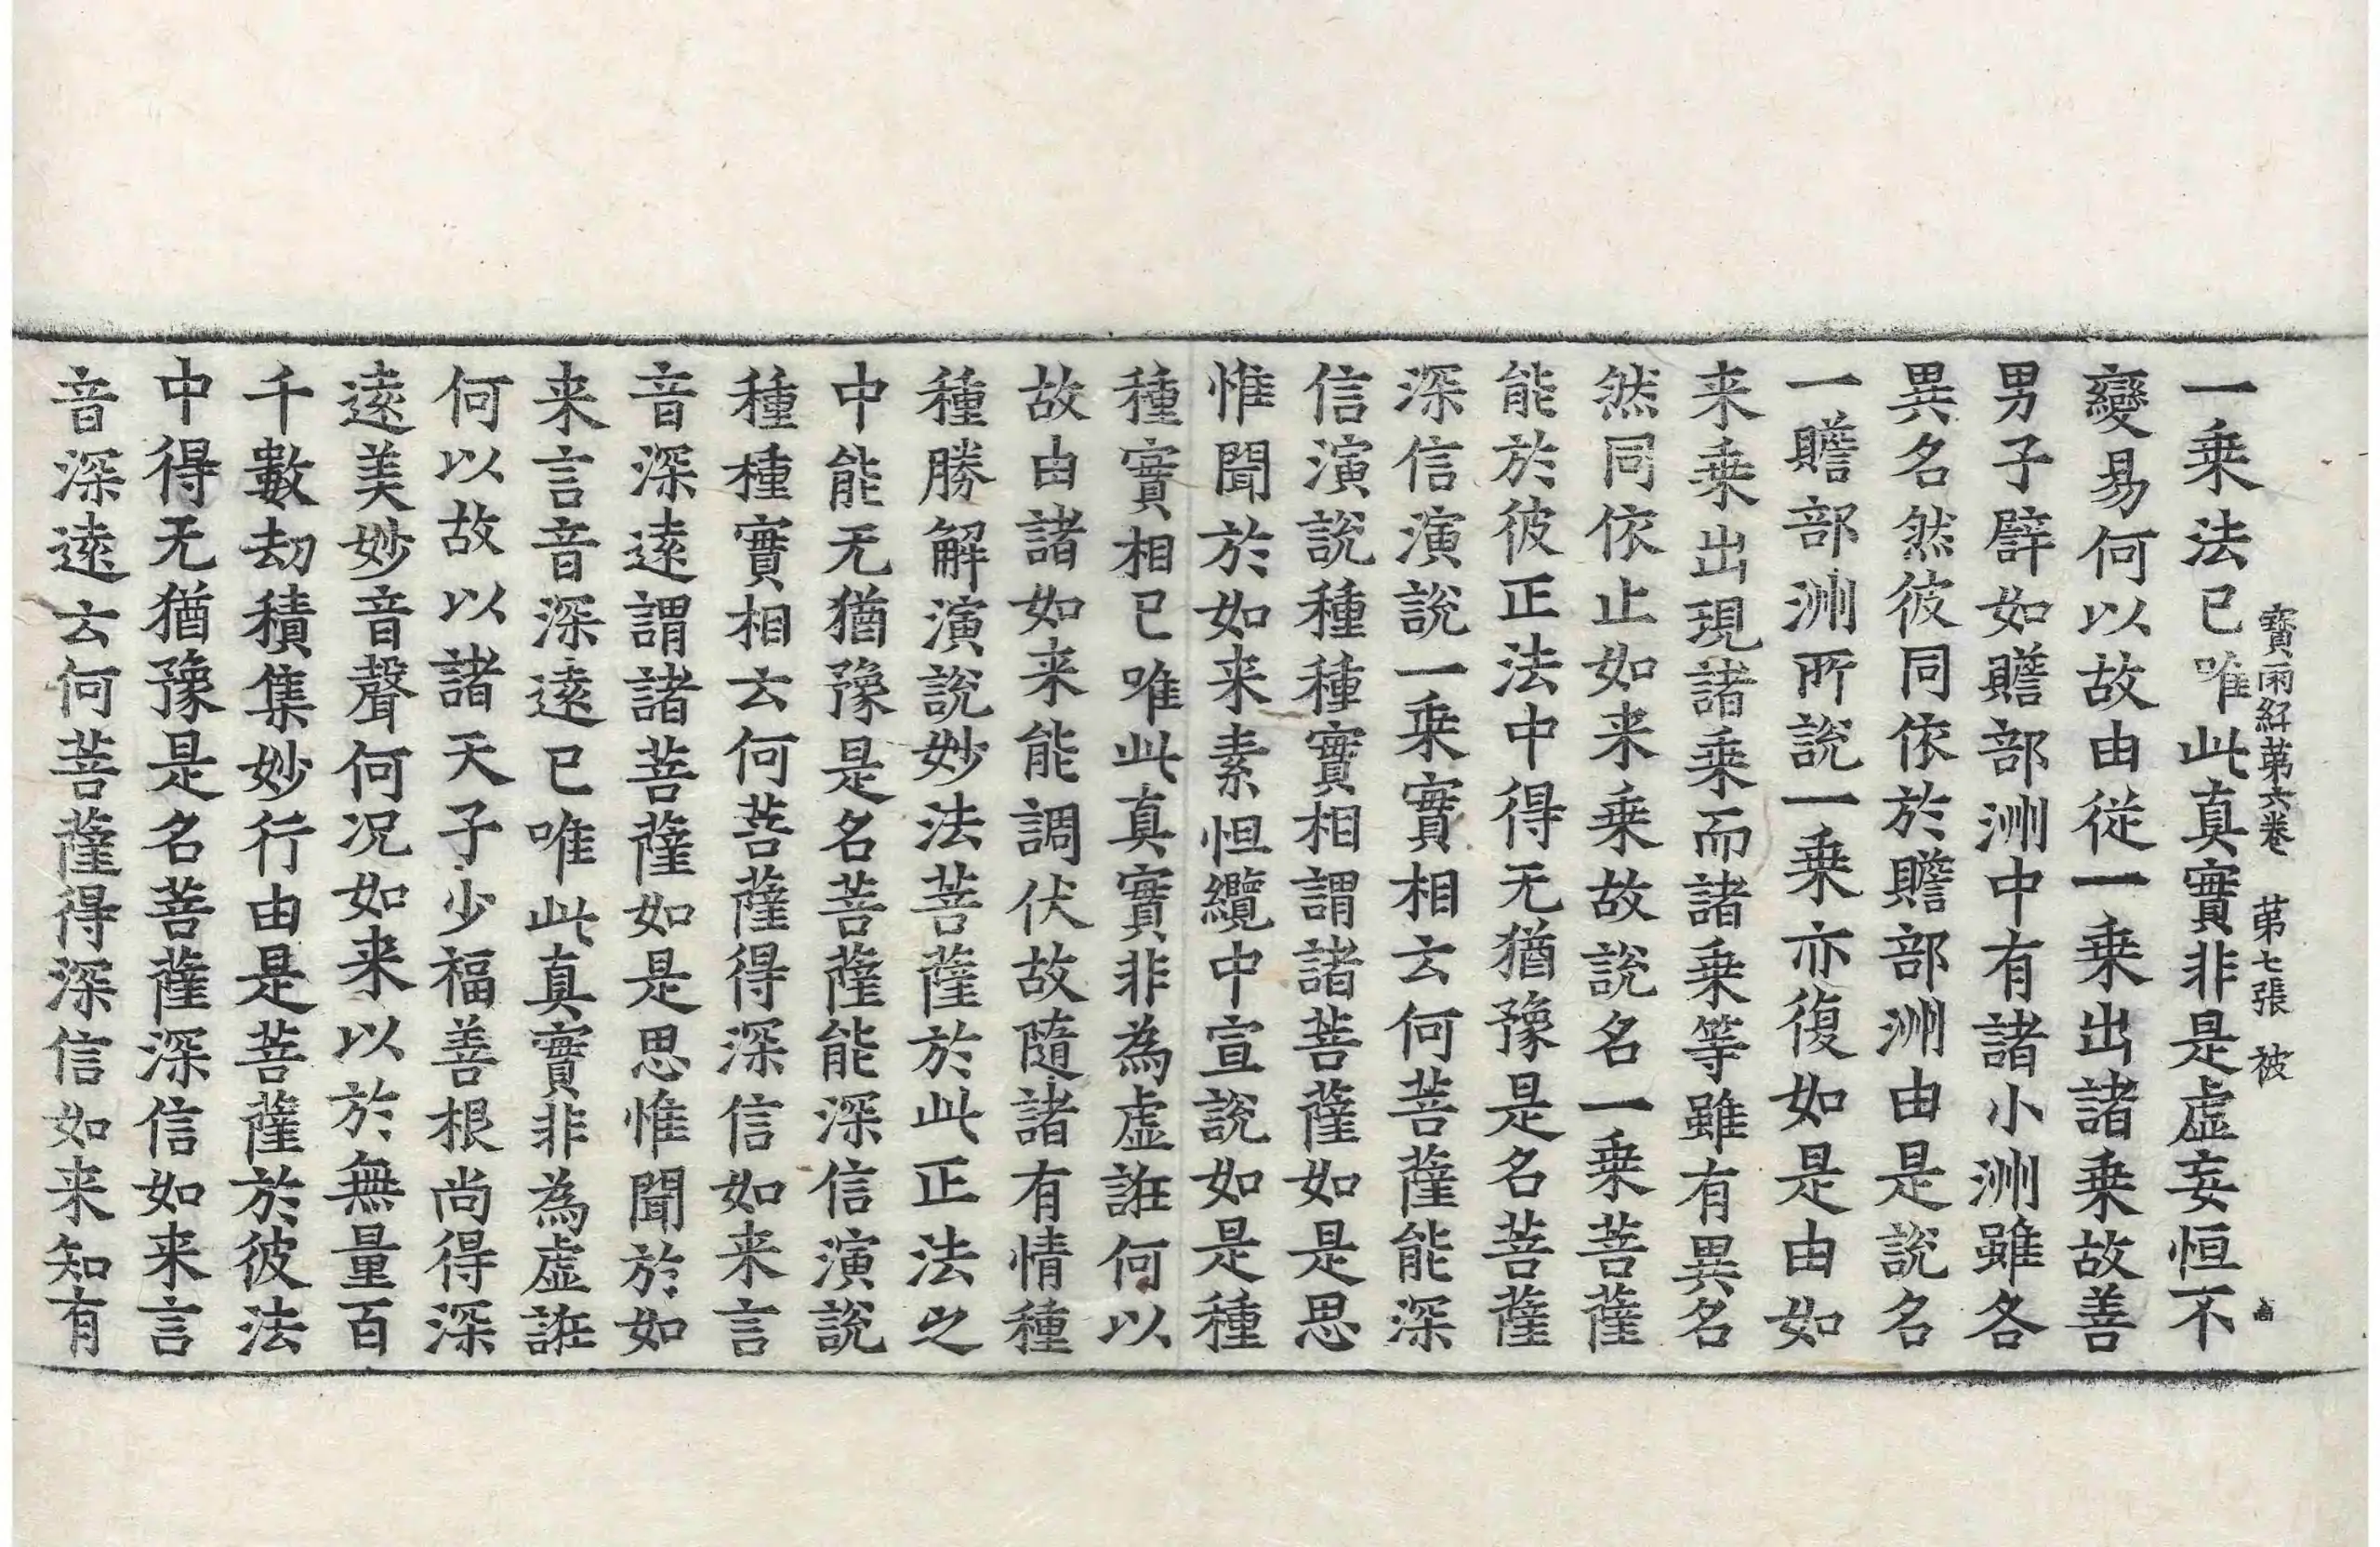 寳雨經苐六卷 苐七張 被
一乗法已唯此真實非是虛妄恒不
變易何以故由從一乗出諸乗故善
男子譬如贍部洲中有諸小洲雖各
異名然彼同依於贍部洲由是說名
一贍部洲所說一乗亦復如是由如
来乗出現諸乗而諸乗等雖有異名
然同依止如来乗故說名一乗菩薩
能於彼正法中得无猶豫是名菩薩
深信演說一乗實相云何菩薩能深
信演說種種實相謂諸菩薩如是思
惟聞於如来素怛纜中宣說如是種
種實相已唯此真實非為虛誑何以
故由諸如来能調伏故隨諸有情種
種勝解演說妙法菩薩於此正法之
中能无猶豫是名菩薩能深信演說
種種實相云何菩薩得深信如来言
音深遠謂諸菩薩如是思惟聞於如
来言音深遠已唯此真實非為虛誑
何以故以諸天子少福善根尚得深
遠美妙音聲何况如来以於無量百
千數劫積集妙行由是菩薩於彼法
中得无猶豫是名菩薩深信如来言
音深遠云何菩薩得深信如来知有